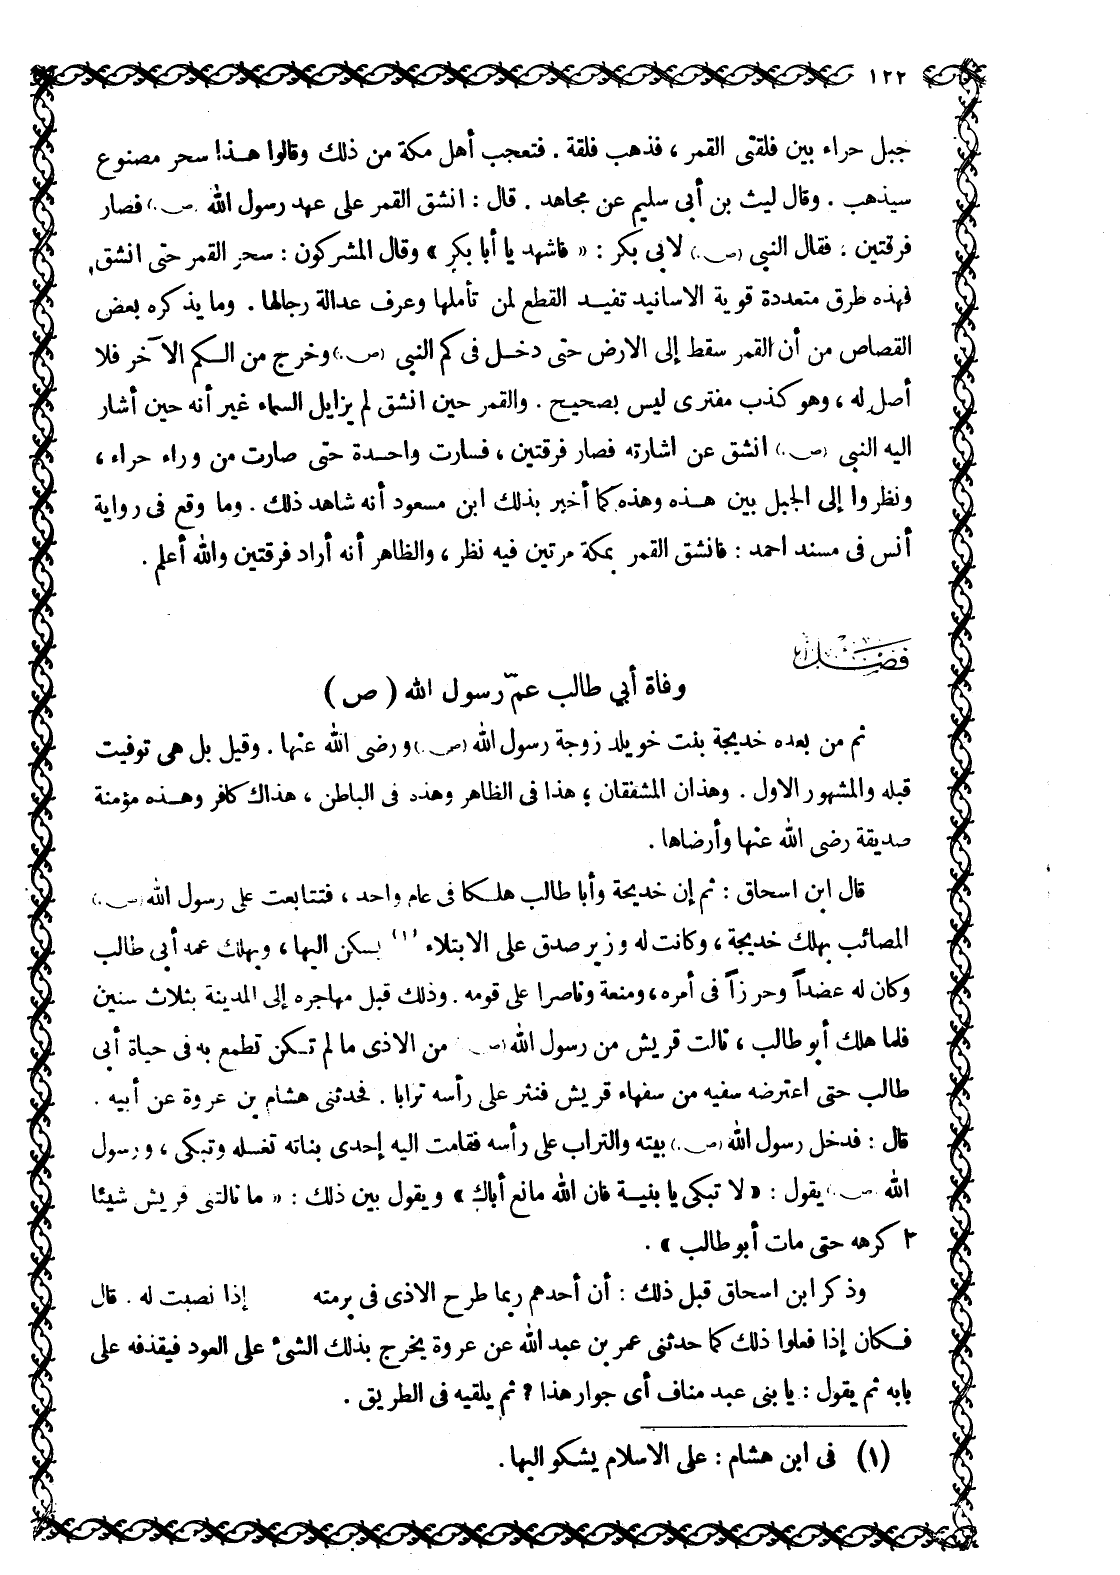 ١٢٢
جبل حراء بين فلقتى القمر ، فذهب فلقة . فتعجب أهل مكة من ذلك وقالوا هـذا سحر مصنوع
سيذهب . وقال ليث بن أبى سليم عن مجاهد . قال : انشق القمر على عهد رسول الله (ص) فصار
فرقتين . فقال النبى (ص) لابى بكر : « فاشهد يا أبا بكر » وقال المشركون : سحر القمر حتى انشق.
فهذه طرق متعددة قوية الاسانيد تفيـد القطع لمن تأملها وعرف عدالة رجالها . وما يذكره بعض
القصاص من أن القمر سقط إلى الارض حتى دخـل فى كم النبى (ص) وخرج من الـكم الآخر فلا
أصل له ، وهو كذب مفترى ليس بصحيح . والقمر حين انشق لم يزايل السماء غير أنه حين أشار
اليه النبى (ص) انشق عن اشارته فصار فرقتين ، فسارت واحـدة حتى صارت من وراء حراء ،
ونظروا إلى الجبل بين هـذه وهذه كما أخبر بذلك ابن مسعود أنه شاهد ذلك . وما وقع فى رواية
أنس فى مسند احمد : فانشق القمر بمكة مرتين فيه نظر ، والظاهر أنه أراد فرقتين والله أعلم .
فصل
وفاة أبي طالب عمّ رسول الله ( ص )
ثم من بعده خديجة بنت خويلد زوجة رسول الله (ص) ورضى الله عنها . وقيل بل هى توفيت
قبله والمشهور الاول . وهذان المشفقان ؛ هذا فى الظاهر وهذه فى الباطن ، هذاك كافر وهـذه مؤمنة
صديقة رضى الله عنها وأرضاها .
قال ابن اسحاق : ثم إن خديجة وأبا طالب هلـكا فى عام واحد ، فتتابعت على رسول الله (ص)
المصائب بهلك خديجة ، وكانت له وزير صدق على الابتلاء (١) يسكن اليها ، وبهلك عمه أبى طالب
وكان له عضداً وحرزاً فى أمره ، ومنعة وناصرا على قومه . وذلك قبل مهاجره إلى المدينة بثلاث سنين
فلما هلك أبو طالب ، نالت قريش من رسول الله (ص) من الاذى ما لم تـكن تطمع به فى حياة أبى
طالب حتى اعترضه سفيه من سفهاء قريش فنثر على رأسه ترابا . فحدثنى هشام بن عروة عن أبيه .
قال : فدخل رسول الله (ص) بيته والتراب على رأسه فقامت اليه إحدى بناته تغسله وتبكى ، ورسول
الله (ص) يقول : « لا تبكى يا بنيـة فان الله مانع أباك » ويقول بين ذلك : « ما نالتنى قريش شيئا
اكرهه حتى مات أبو طالب » .
وذكر ابن اسحاق قبل ذلك : أن أحدهم ربما طرح الاذى فى برمته إذا نصبت له . قال
فـكان إذا فعلوا ذلك كما حدثنى عمر بن عبد الله عن عروة يخرج بذلك الشئ على العود فيقذفه على
بابه ثم يقول : يا بنى عبد مناف أى جوار هذا ؟ ثم يلقيه فى الطريق .
(١) فى ابن هشام : على الاسلام يشكو اليها .